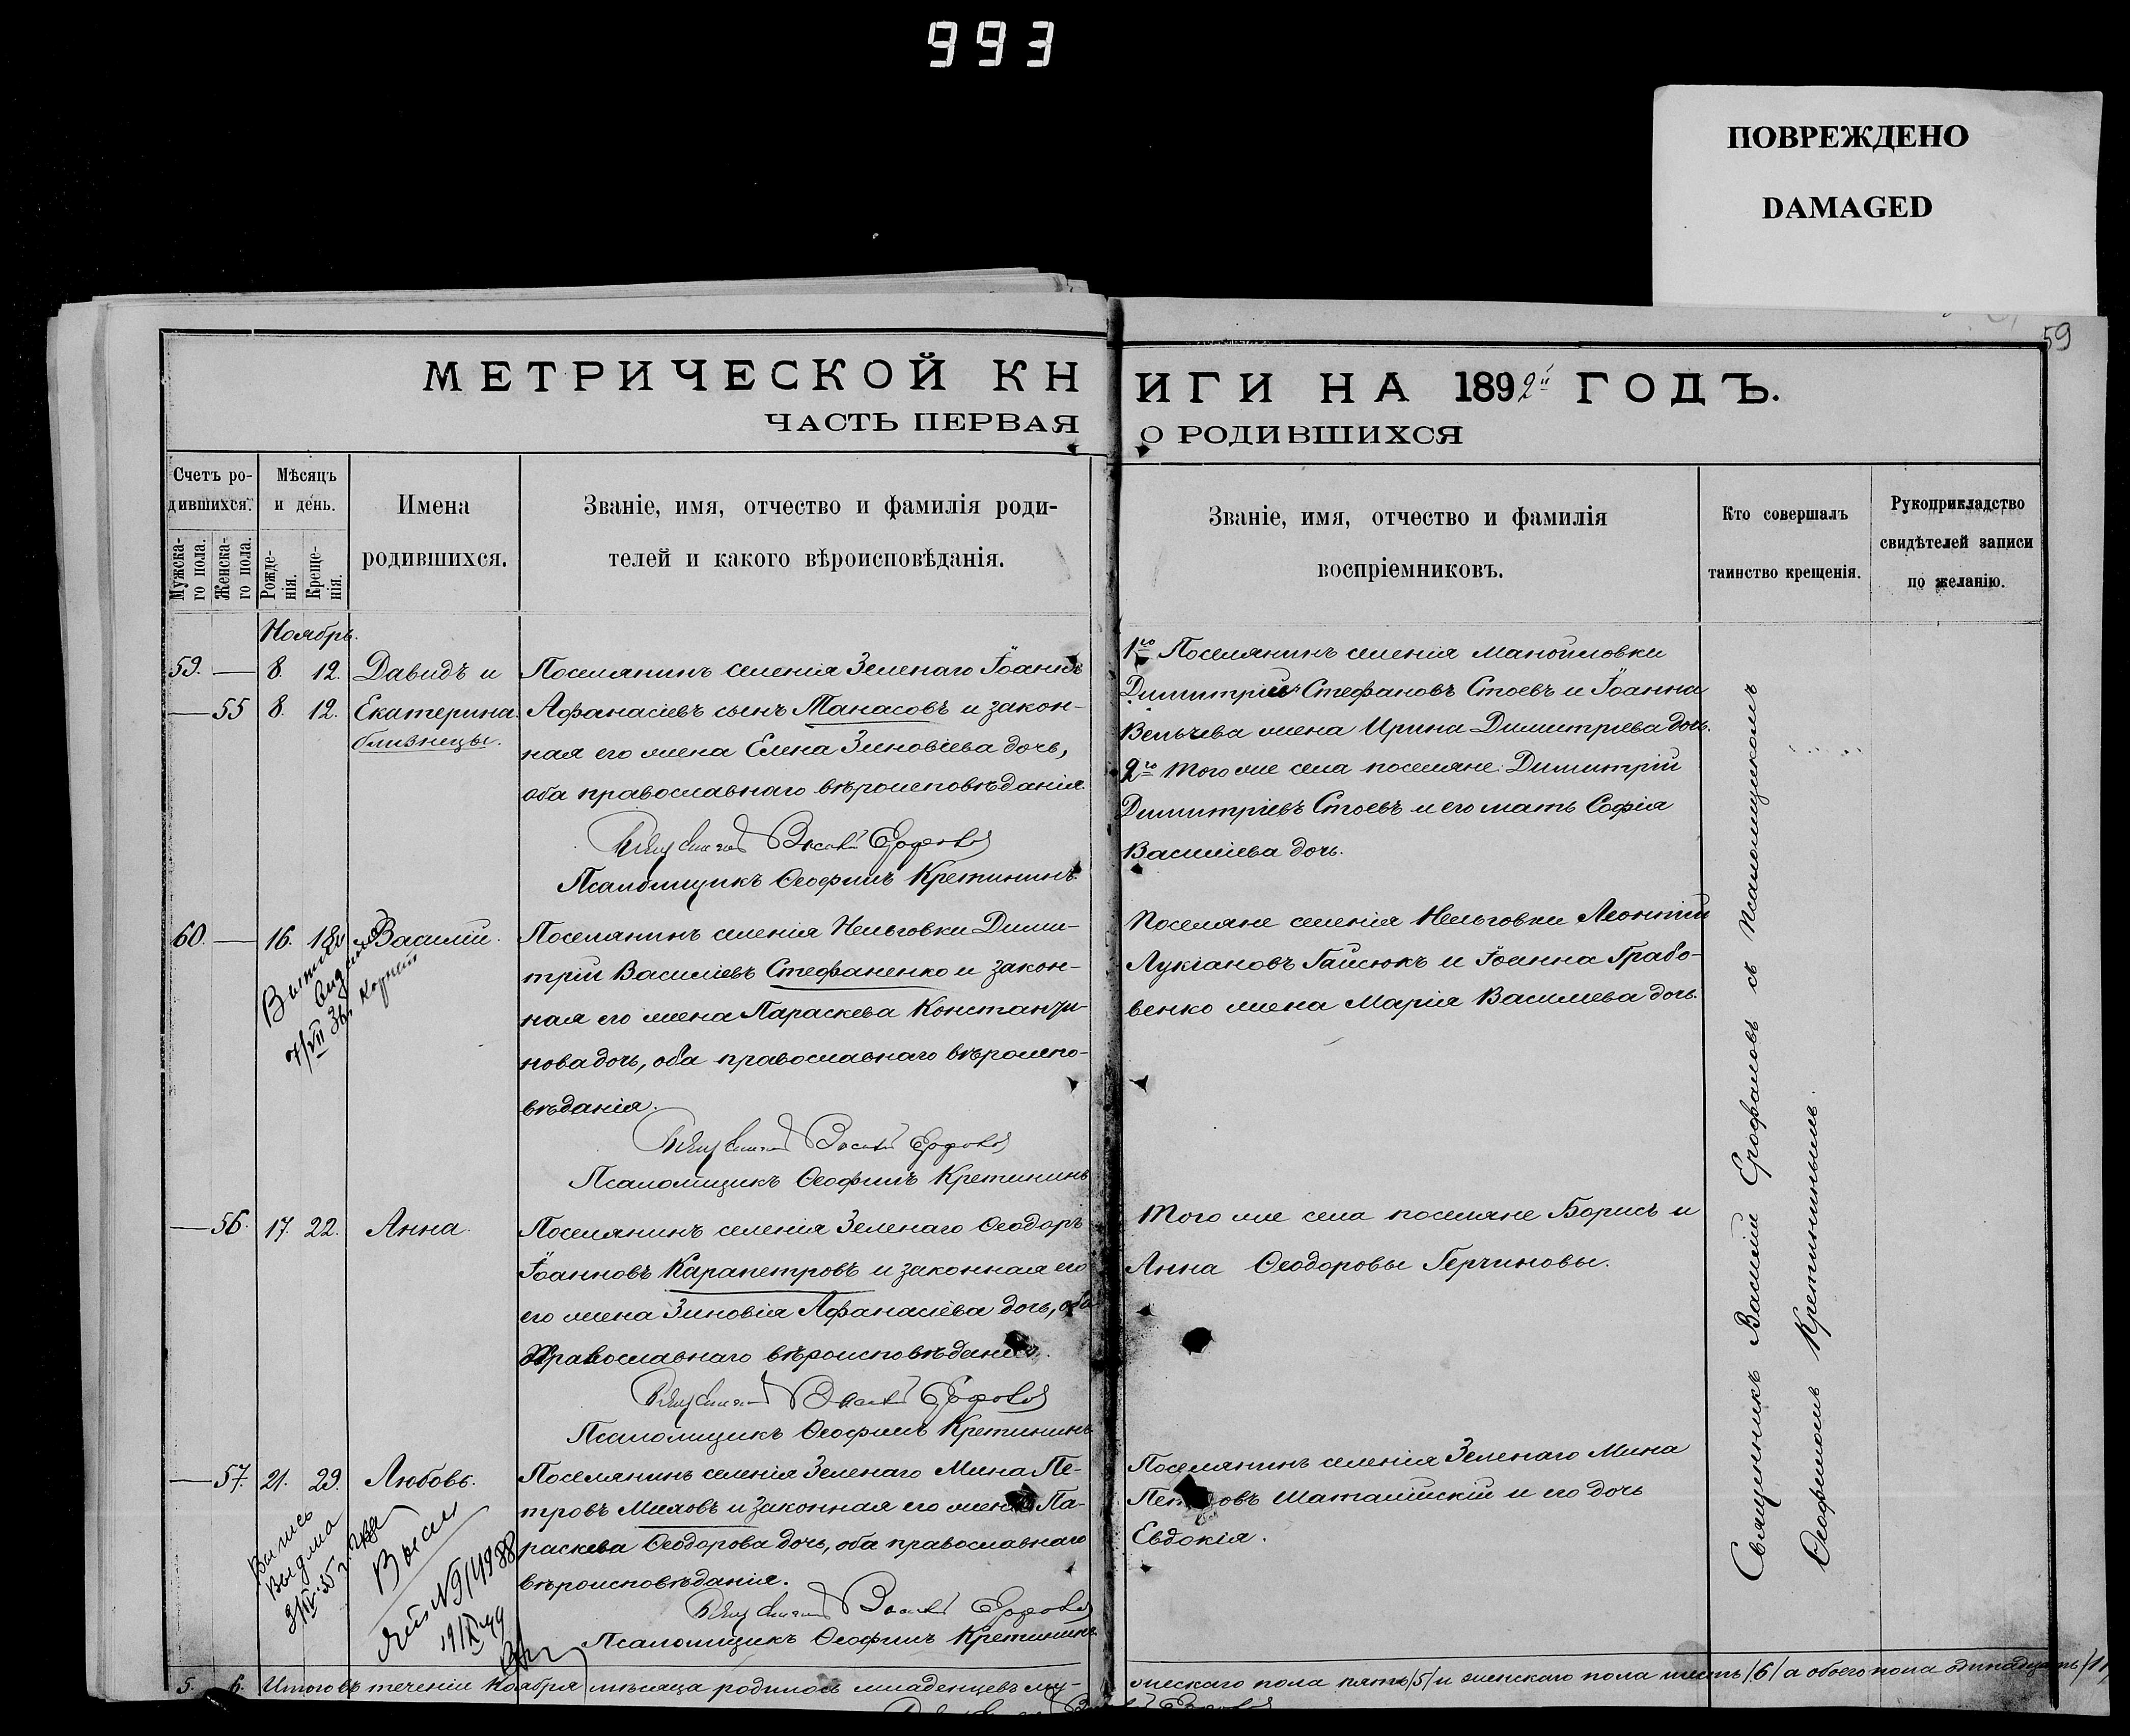 993
ПОВРЕЖДЕНО
DAMAGED
59
МЕТРИЧЕСКОЙ КНИГИ НА 1892й ГОДЪ.
ЧАСТЬ ПЕРВАЯ О РОДИВШИХСЯ
Счетъ ро-
дившихся.
Мужска-
го пола.
Женска-
го пола.
Мѣсяцъ
и день.
Рожде-
нія.
Креще-
нія.
Имена
родившихся.
Званіе, имя, отчество и фамилія роди-
телей и какого вѣроисповѣданія.
Званіе, имя, отчество и фамилія
воспріемниковъ.
Кто совершалъ
таинство крещенія.
Рукоприкладство
свидѣтелей записи
по желанію.
Ноябрь.
59. — 8. 12. Давидъ и
— 55 8. 12. Екатерина
близнецы.
Поселянинъ селенія Зеленаго Іоаннъ
Афанасіевъ сынъ Танасовъ и закон-
ная его жена Елена Зиновіева дочь,
оба православнаго вѣроисповѣданія.
Псаломщикъ Ѳеофилъ Кретининъ
1го Поселянинъ селенія Манойловки
Димитрій Стефановъ Стоевъ и Іоанна
Вельчева жена Ирина Димитріева дочь.
2го Того же села поселяне: Димитрій
Димитріевъ Стоевъ и его мать Софія
Василіева дочь.
60. — 16. 18. Василій.
Поселянинъ селенія Нельговки Дими-
трій Василіевъ Стефаненко и закон-
ная его жена Параскева Константи-
нова дочь, оба православнаго вѣроиспо-
вѣданія.
Псаломщикъ Ѳеофилъ Кретининъ
Поселяне селенія Нельговки Леонтій
Лукіановъ Гайсюкъ и Іоанна Грабо-
венко жена Марія Василіева дочь.
— 56. 17. 22. Анна.
Поселянинъ селенія Зеленаго Ѳеодоръ
Іоанновъ Карапетровъ и законная его
его жена Зиновія Афанасіева дочь, оба
православнаго вѣроисповѣданія.
Псаломщикъ Ѳеофилъ Кретининъ
Того же села поселяне Борисъ и
Анна Ѳеодоровы Герчиновы.
— 57. 21. 29. Любовь.
Поселянинъ селенія Зеленаго Мина Пе-
тровъ Милювъ и законная его жена Па-
раскева Ѳеодорова дочь, оба православнаго
вѣроисповѣданія.
Псаломщикъ Ѳеофилъ Кретининъ
Поселянинъ селенія Зеленаго Мина
Петровъ Шаталійскій и его дочь
Евдокія.
Священникъ Василій Ерофаловъ съ псаломщикомъ
Ѳеофиломъ Кретининымъ.
5. 6. Итого въ теченіи Ноября мѣсяца родилось младенцевъ му-
жескаго пола пять /5/ и женскаго пола шесть /6/ а обоего пола одинадцать /11/